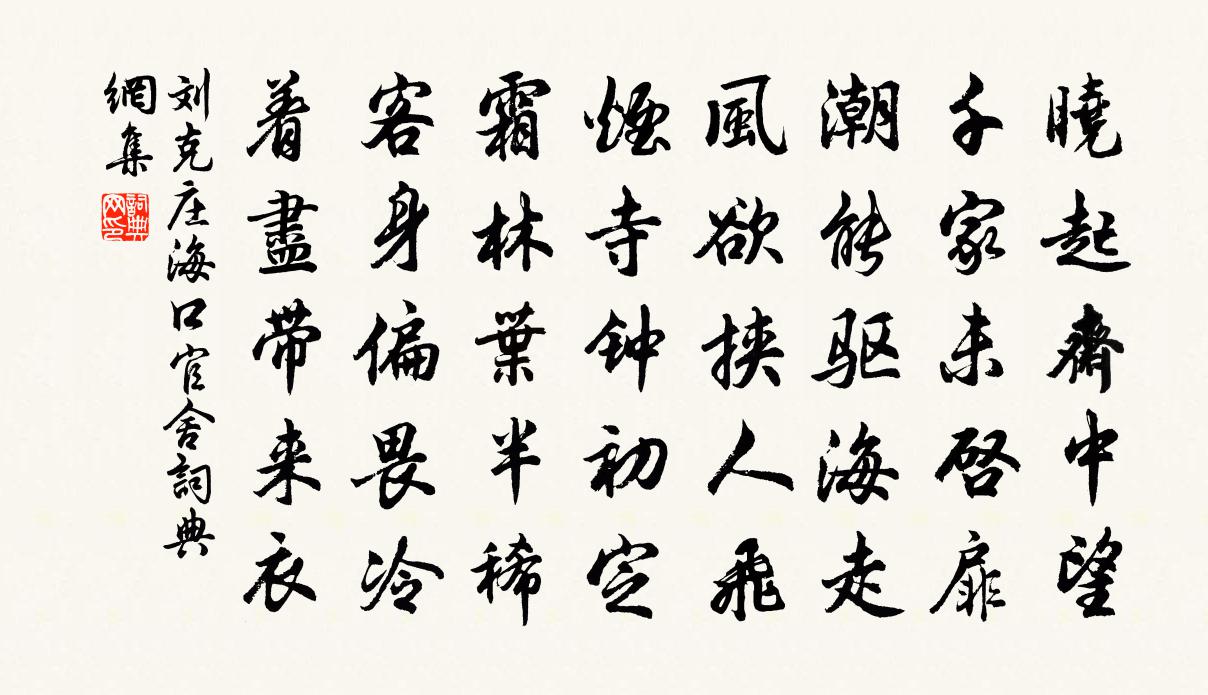 曉起齋中望
千家未啓扉
潮能驱海走
風欲挟人飛
煙寺钟初定
霜林葉半稀
客身偏畏冷
着盡带来衣
刘克庄海口官舍詞典
網集
詞典
网印